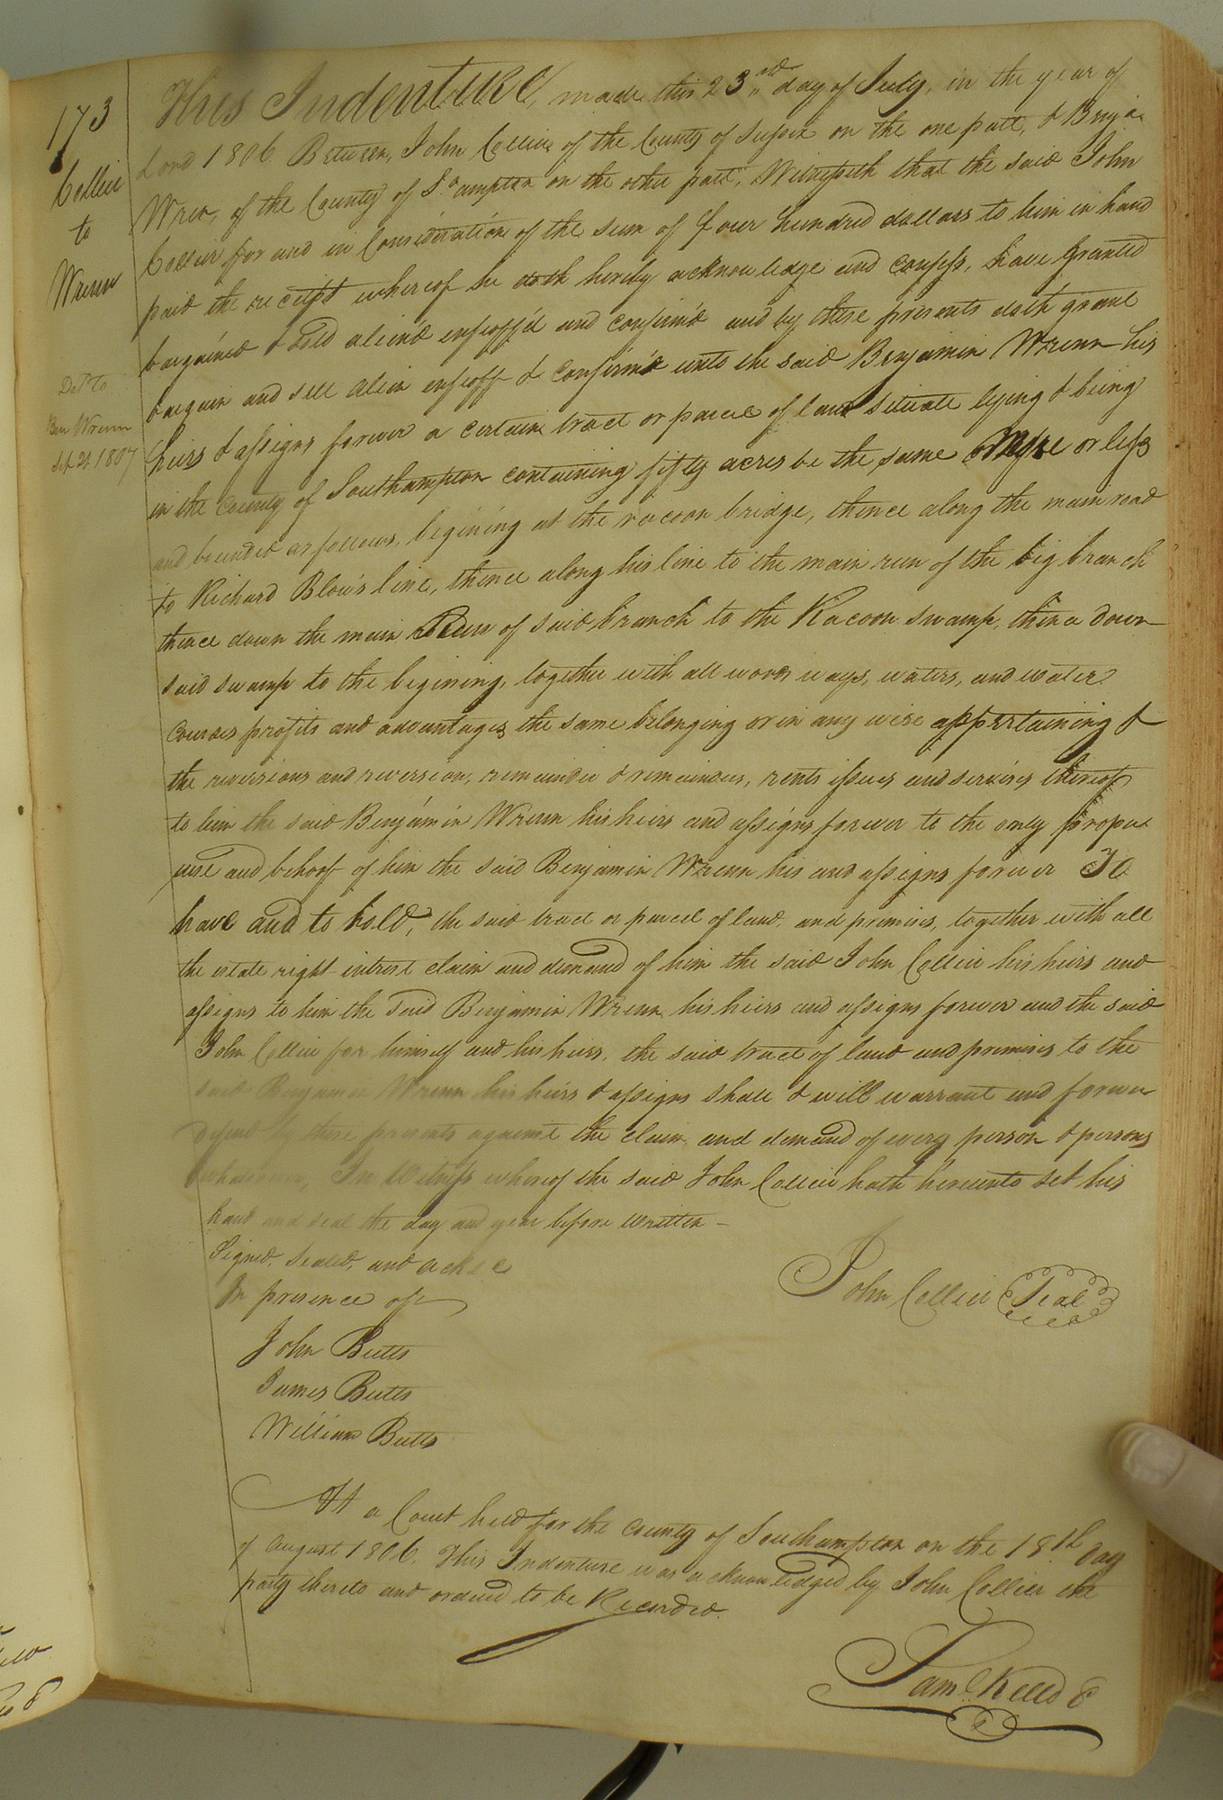 173
Collier
to
Wrenn
Del'd to
Ben Wrenn
Sep 21 1807
This Indenture, made this 23rd day of July, in the year of
Lord 1806 Between, John Collier of the County of Sussex on the one part, & Benja
Wren, of the County of So ampton on the other part, Witnesseth that the said John
Collier for and in Consideration of the sum of four hundred dollars to him in hand
paid the receipt whereof he doth hereby acknowledge and confess, have Granted
bargained & sold alien'd enfeoff'd and confirm'd and by these presents doth grant
bargain and sell alien enfeoff & confirm unto the said Benjamin Wrenn his
heirs & assigns forever a certain tract or parcel of land situate lying & being
in the County of Southampton containing fifty acres be the same more or less
and bounded as follows, begining at the racoon bridge, thence along the main road
to Richard Blow's line, thence along his line to the main run of the big branch
thence down the main Run of said branch to the Racoon swamp, thence down
said swamp to the begining, together with all woods ways, waters, and water
courses profits and advantages the same belonging or in any wise appertaining &
the reversions and reversion, remainder & remainders, rents issues and services thereof
to him the said Benjamin Wrenn his heirs and assigns forever to the only proper
use and behoof of him the said Benjamin Wrenn his and assigns forever To
have and to hold, the said tract or parcel of land, and premises, together with all
the estate right intrest claim and demand of him the said John Collier his heirs and
assigns to him the said Benjamin Wrenn his heirs and assigns forever and the said
John Collier for himself and his heirs, the said tract of land and premises to the
said Benjamin Wrenn his heirs & assigns shall & will warrant and forever
defend by these presents against the claim and demand of every person & persons
whatsoever, In Witness whereof the said John Collier hath hereunto set his
hand and seal the day and year before written —
Signed, sealed, and
In presence of
John Collier Seal
John Butts
James Butts
William Butts
At a Court held for the County of Southampton on the 18th day
of August 1806. This Indenture was acknowledged by John Collier the
party thereto and ordered to be Recorded.
Saml Kello C